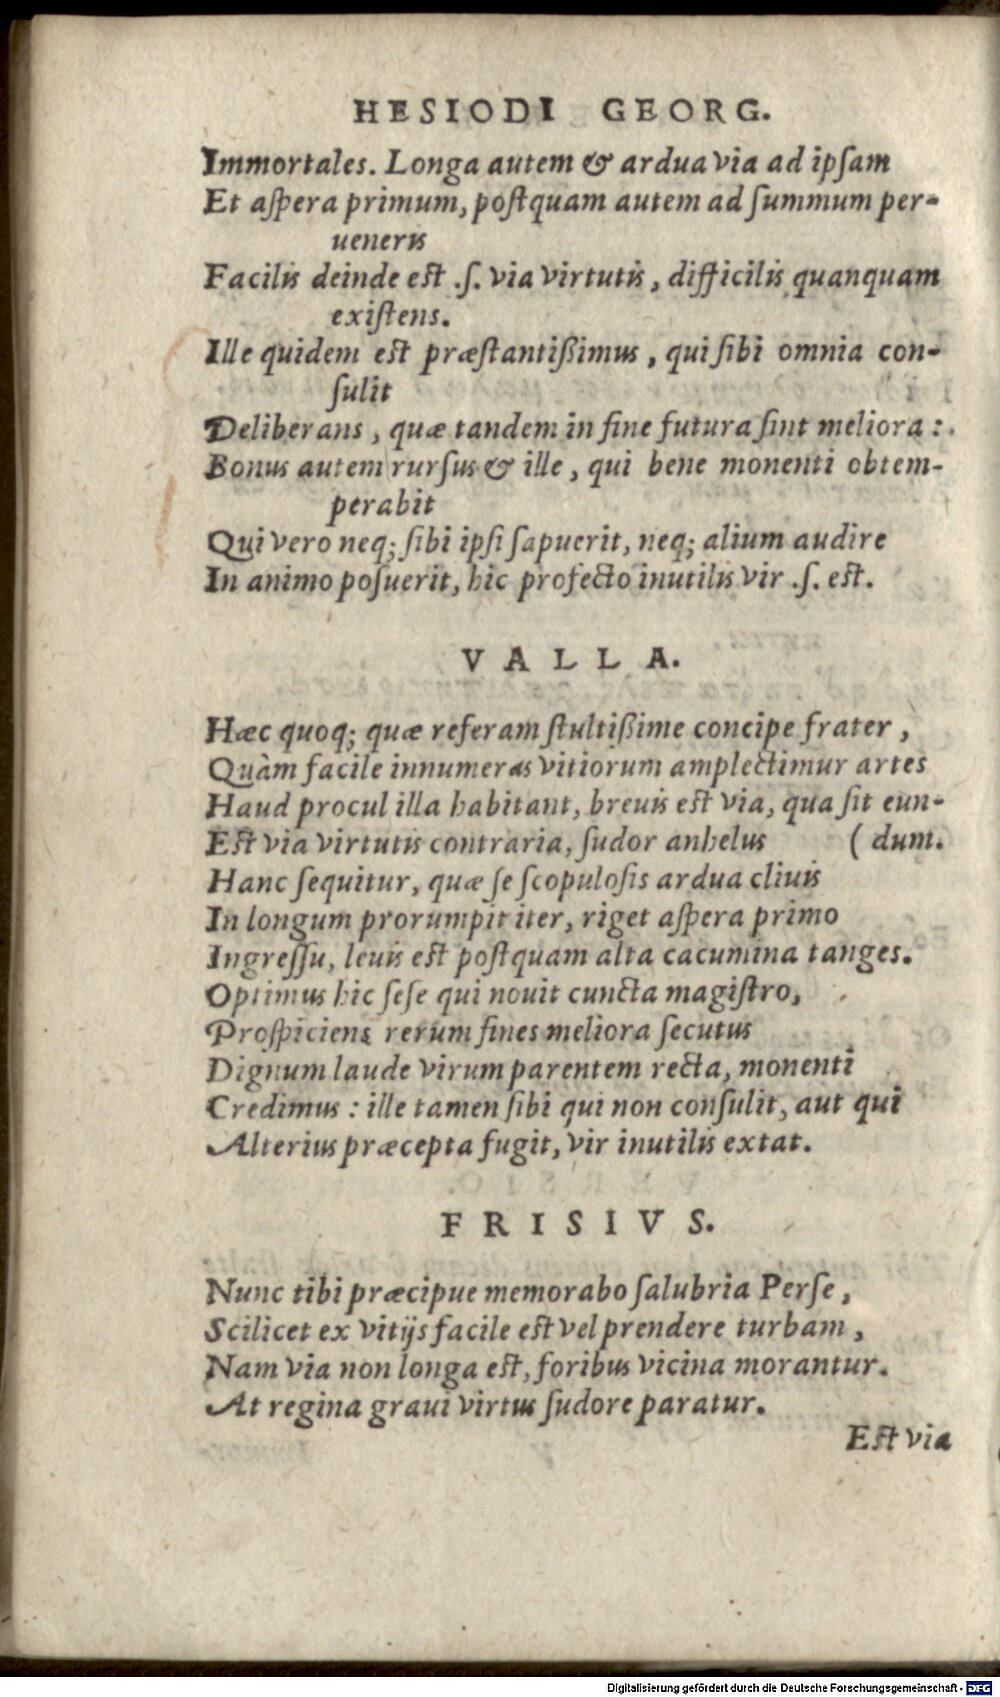 HESIODI GEORG.
Immortales. Longa autem & ardua via ad ipſam
Et aſpera primum, poſtquam autem ad ſummum per-
ueneris
Facilis deinde eſt .ſ. via virtutis, difficilis quanquam
exiſtens.
Ille quidem eſt præſtantißimus, qui ſibi omnia con-
ſulit
Deliberans, quæ tandem in fine futura ſint meliora:.
Bonus autem rurſus & ille, qui bene monenti obtem-
perabit
Qui vero neq; ſibi ipſi ſapuerit, neq; alium audire
In animo poſuerit, hic profecto inutilis vir .ſ. eſt.
VALLA.
Hæc quoq; quæ referam ſtultißime concipe frater,
Quàm facile innumeras vitiorum amplectimur artes
Haud procul illa habitant, breuis eſt via, qua ſit eun-
Eſt via virtutis contraria, ſudor anhelus (dum.
Hanc ſequitur, quæ ſe ſcopuloſis ardua cliuis
In longum prorumpit iter, riget aſpera primo
Ingreſſu, leuis eſt poſtquam alta cacumina tanges.
Optimus hic ſeſe qui nouit cuncta magiſtro,
Proſpiciens rerum fines meliora ſecutus
Dignum laude virum parentem recta, monenti
Credimus: ille tamen ſibi qui non conſulit, aut qui
Alterius præcepta fugit, vir inutilis extat.
FRISIVS.
Nunc tibi præcipue memorabo ſalubria Perſe,
Scilicet ex vitijs facile eſt vel prendere turbam,
Nam via non longa eſt, foribus vicina morantur.
At regina graui virtus ſudore paratur.
Eſt via
Digitalisierung gefördert durch die Deutsche Forschungsgemeinschaft - DFG